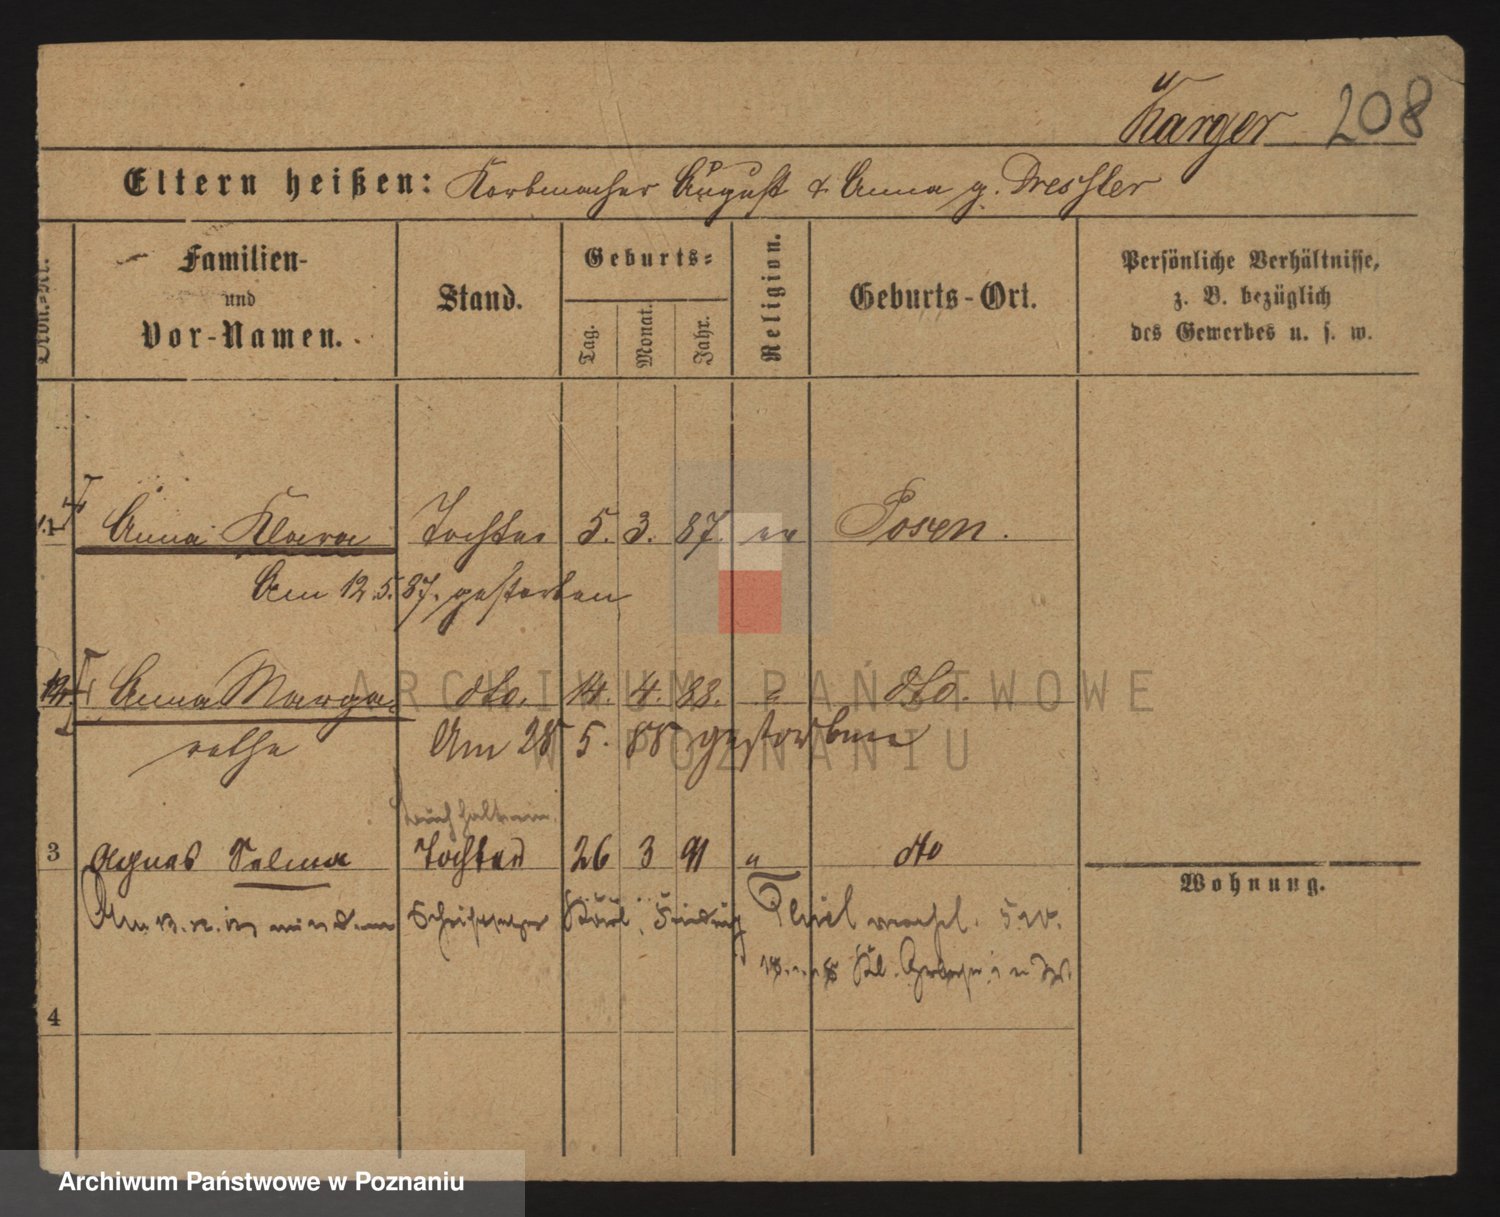 Karger 208
Eltern heißen: Korbmacher August & Anna g. Dreßler
Ordn.-Nr.
Familien-
und
Vor-Namen.
Stand.
Geburts-
Tag.
Monat.
Jahr.
Religion.
Geburts-Ort.
Persönliche Verhältnisse,
z. B. bezüglich
des Gewerbes u. s. w.
1. Anna Klara Tochter 5. 3. 87. ev Posen.
Am 12.5.87. gestorben
Anna Marga- dto. 14. 4. 88. " dto.
rethe Am 28 5. 88 gestorben
Buchhalterin
3 Agnes Selma Tochter 26 3 91 " dto
Wohnung.
Am Schriftsetzer Thiel
4
ARCHIWUM PAŃSTWOWE
W POZNANIU
Archiwum Państwowe w Poznaniu